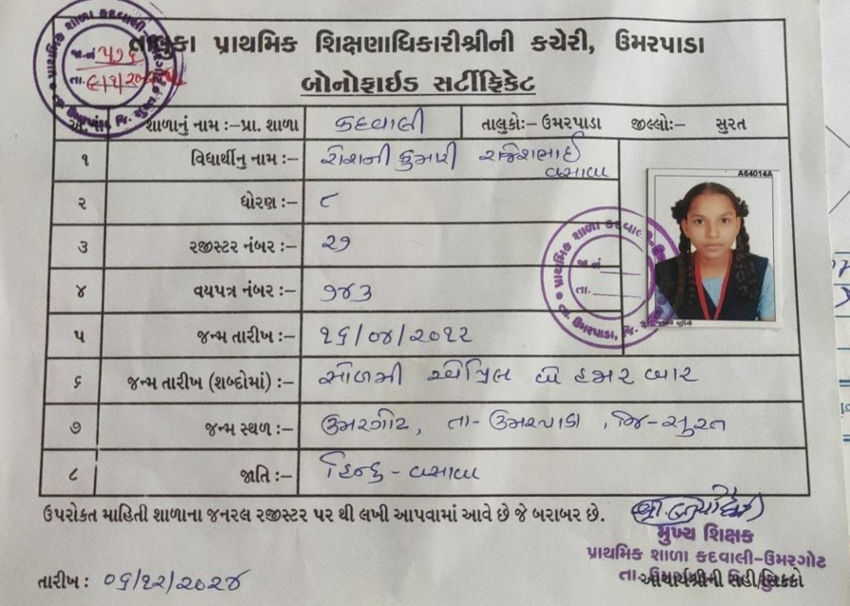 તાલુકા પ્રાથમિક શિક્ષણાધિકારીશ્રીની કચેરી, ઉમરપાડા
જા.નં ૫૭૬
તા.
બોનોફાઇડ સર્ટીફિકેટ
શાળાનું નામ :-પ્રા. શાળા કદવાલી તાલુકો:- ઉમરપાડા જીલ્લો:- સુરત
૧ વિદ્યાર્થીનુ નામ :- રોશની કુમારી રાજેશભાઈ
વસાવા
A64014A
૨ ધોરણ :- ૮
૩ રજીસ્ટર નંબર :- ૨૧
જા.નં
તા.
૪ વયપત્ર નંબર :- ૧૪૩
૫ જન્મ તારીખ :- ૧૬/૦૪/૨૦૧૨
૬ જન્મ તારીખ (શબ્દોમાં) :- સોળમી એપ્રિલ બે હજાર બાર
૭ જન્મ સ્થળ :- ઉમરગોટ, તા- ઉમરપાડા, જિ-સુરત
૮ જાતિ :- હિન્દુ - વસાવા
ઉપરોક્ત માહિતી શાળાના જનરલ રજીસ્ટર પર થી લખી આપવામાં આવે છે જે બરાબર છે.
મુખ્ય શિક્ષક
પ્રાથમિક શાળા કદવાલી-ઉમરગોટ
તારીખ : ૦૬/૧૨/૨૦૨૪ આચાર્યશ્રીની સહી/સિક્કો